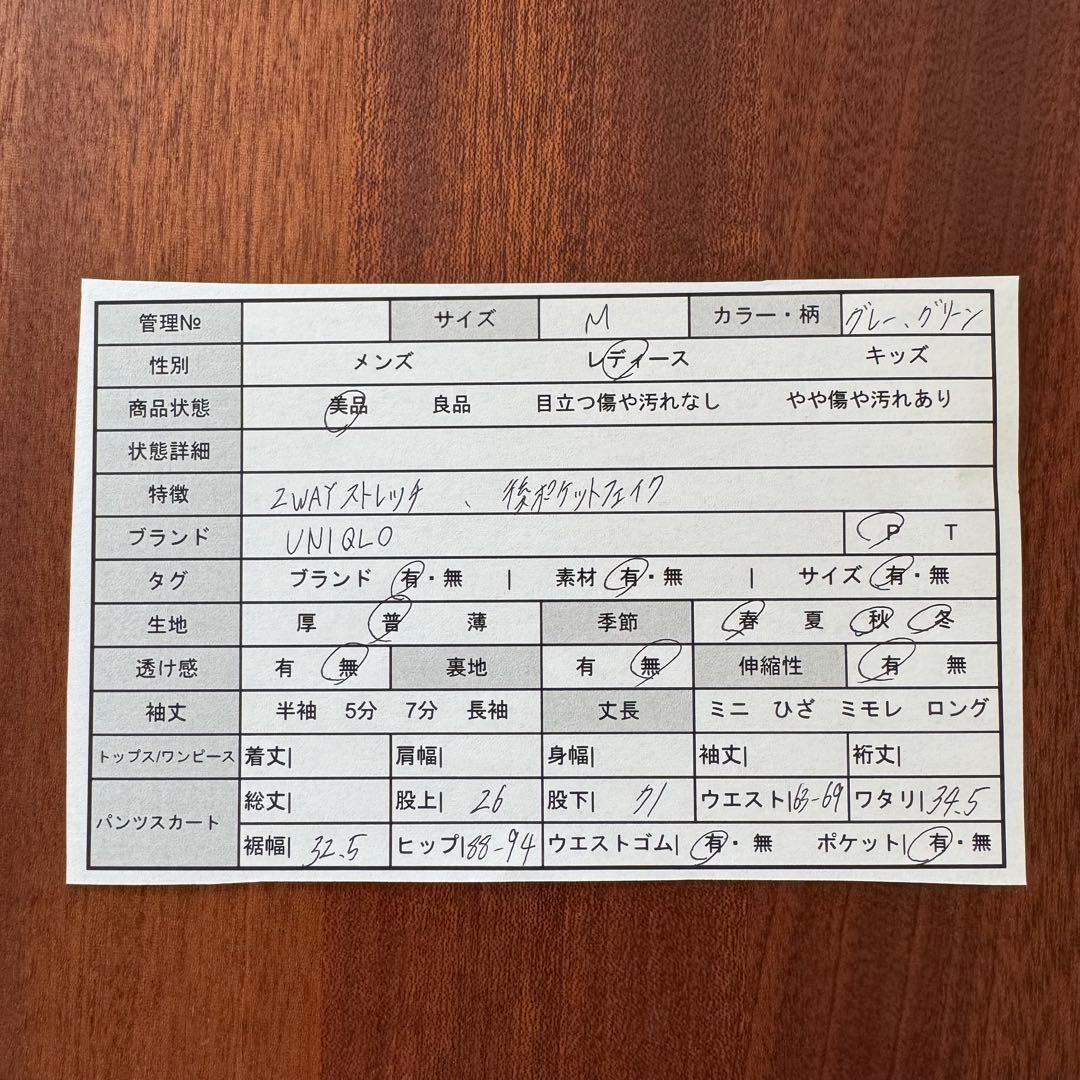 管理№ サイズ M カラー・柄 グレー、グリーン
性別 メンズ レディース キッズ
商品状態 美品 良品 目立つ傷や汚れなし やや傷や汚れあり
状態詳細
特徴 2WAYストレッチ、後ポケットフェイク
ブランド UNIQLO P T
タグ ブランド 有・無 | 素材 有・無 | サイズ 有・無
生地 厚 普 薄 季節 春 夏 秋 冬
透け感 有 無 裏地 有 無 伸縮性 有 無
袖丈 半袖 5分 7分 長袖 丈長 ミニ ひざ ミモレ ロング
トップス/ワンピース 着丈| 肩幅| 身幅| 袖丈| 裄丈|
パンツスカート 総丈| 股上| 26 股下| 71 ウエスト|63-69 ワタリ|34.5
裾幅| 32.5 ヒップ|88-94 ウエストゴム| 有・無 ポケット| 有・無